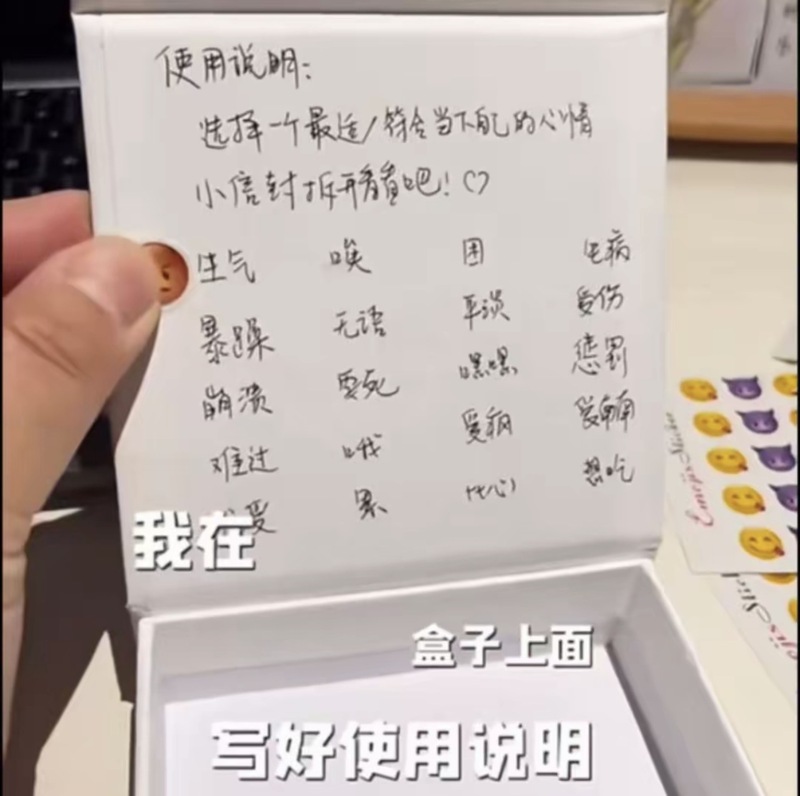 使用说明:
选择一个最适/符合当下自己的心情
小信封拆开看看吧!♡
生气 唉 困 生病
暴躁 无语 平淡 受伤
崩溃 要死 嘿嘿 惩罚
难过 哦 爱哭
爱 累 想吃
我在
盒子上面
写好使用说明
Emoji Sticker